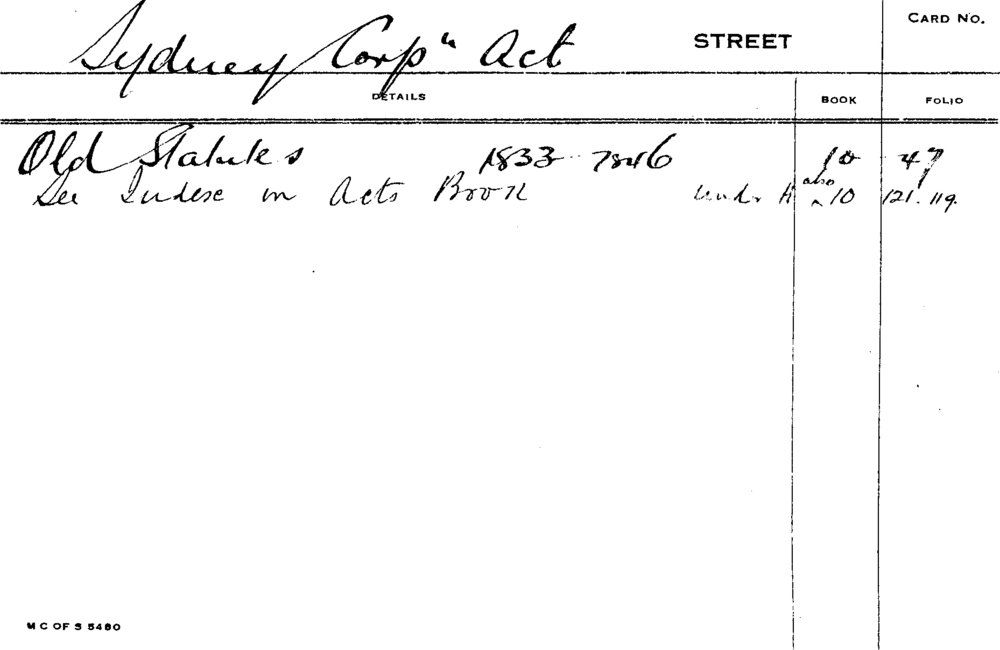 CARD NO.
Sydney Corpn Act STREET
DETAILS BOOK FOLIO
Old Statutes 1833 - 1846 10 47
See Index in Acts Book under A also 10 121. 119.
M C OF S 5480